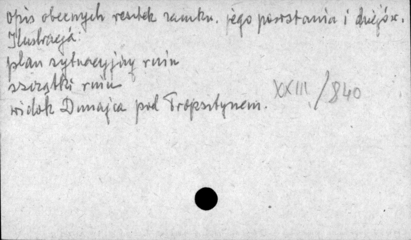 opis obecnych resztek zamku. jego powstania i dziejów.
Ilustracja:
plan sytuacyjny ruin
szczątki ruin
widok Dunajca pod Tropsztynem. XXIII/840